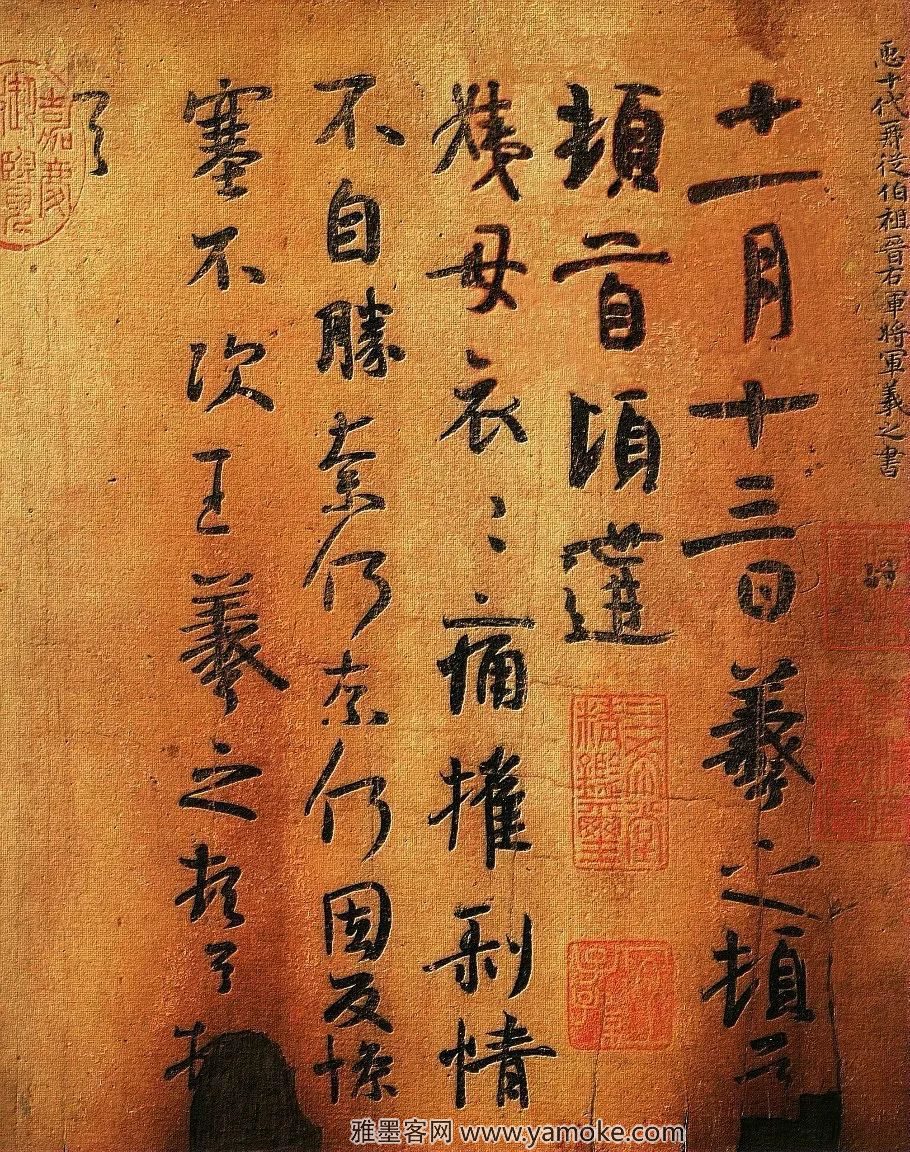 臣十代再從伯祖晉右軍將軍羲之書
十一月十三日羲之頓首
頓首頃遘
姨母哀〻痛摧剝情
不自勝奈何奈何因反慘
塞不次王羲之頓首頓
首
三希堂精鑑璽
宜子孫
嘉慶御覽
雅墨客网 www.yamoke.com